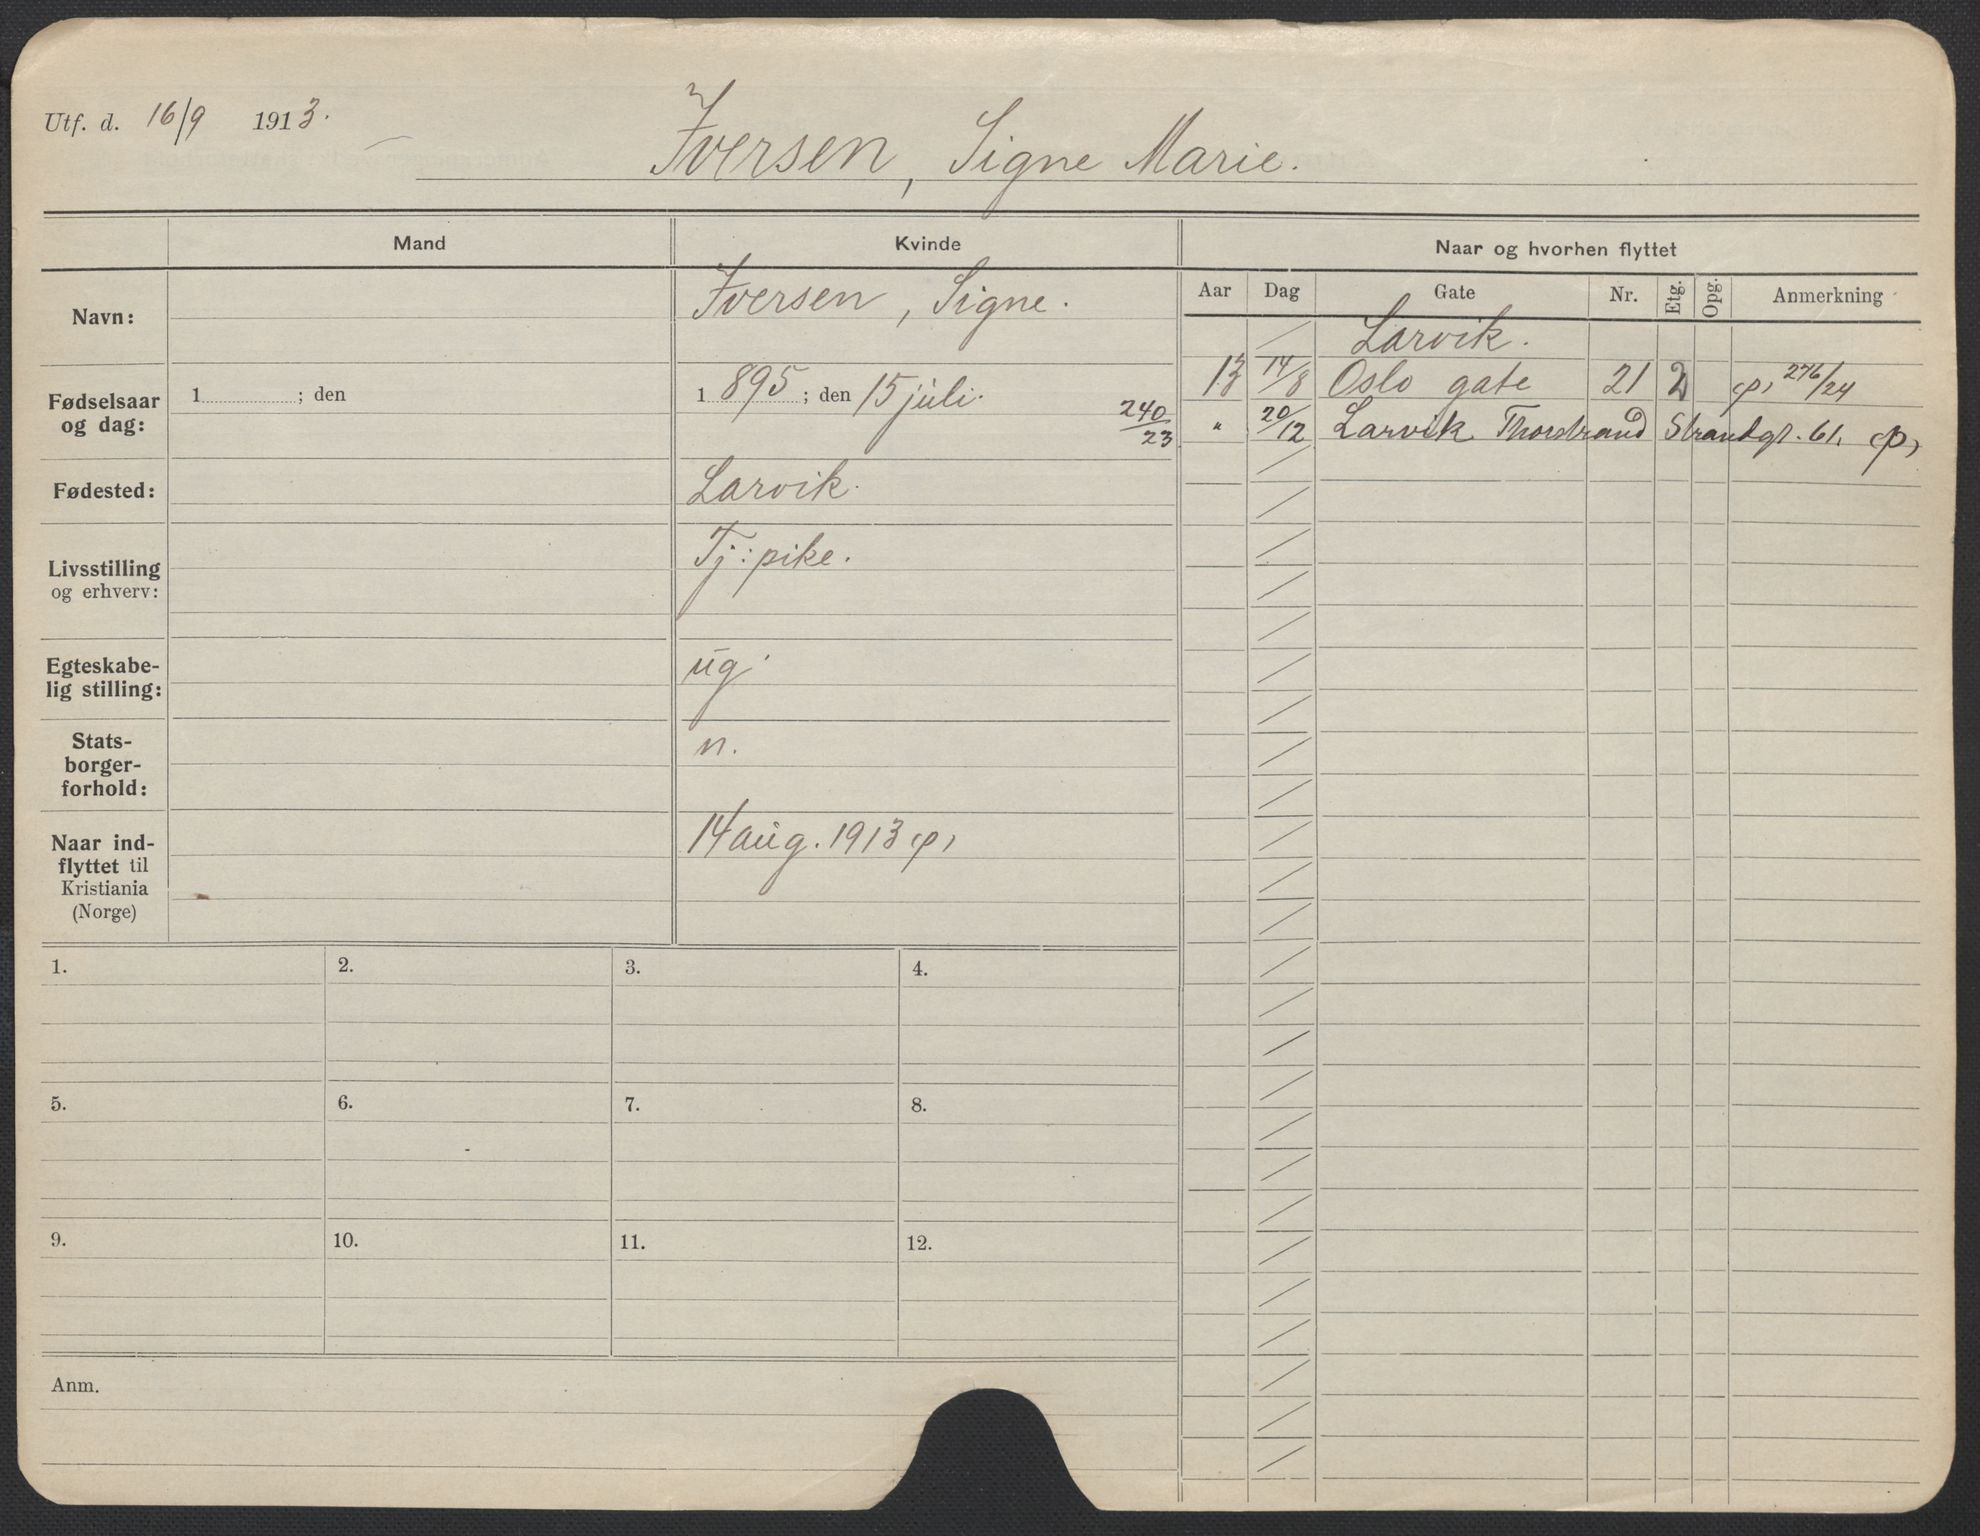 Utf. d. 16/9 1913.
Iversen, Signe Marie.
Mand
Kvinde
Naar og hvorhen flyttet
Navn:
Iversen, Signe.
Fødselsaar og dag:
1 ; den
1 895 ; den 15 juli.
240/23
Fødested:
Larvik.
Livsstilling og erhverv:
Tj: pike.
Egteskabe-
lig stilling:
ug.
Stats-
borger-
forhold:
n.
Naar ind-
flyttet til
Kristiania
(Norge)
14 aug. 1913 p,
Aar Dag Gate Nr. Etg. Opg. Anmerkning
Larvik.
13 14/8 Oslo gate 21 2 p, 276/24
" 20/12 Larvik Thorstrand Strandgt. 61, p,
1. 2. 3. 4.
5. 6. 7. 8.
9. 10. 11. 12.
Anm.